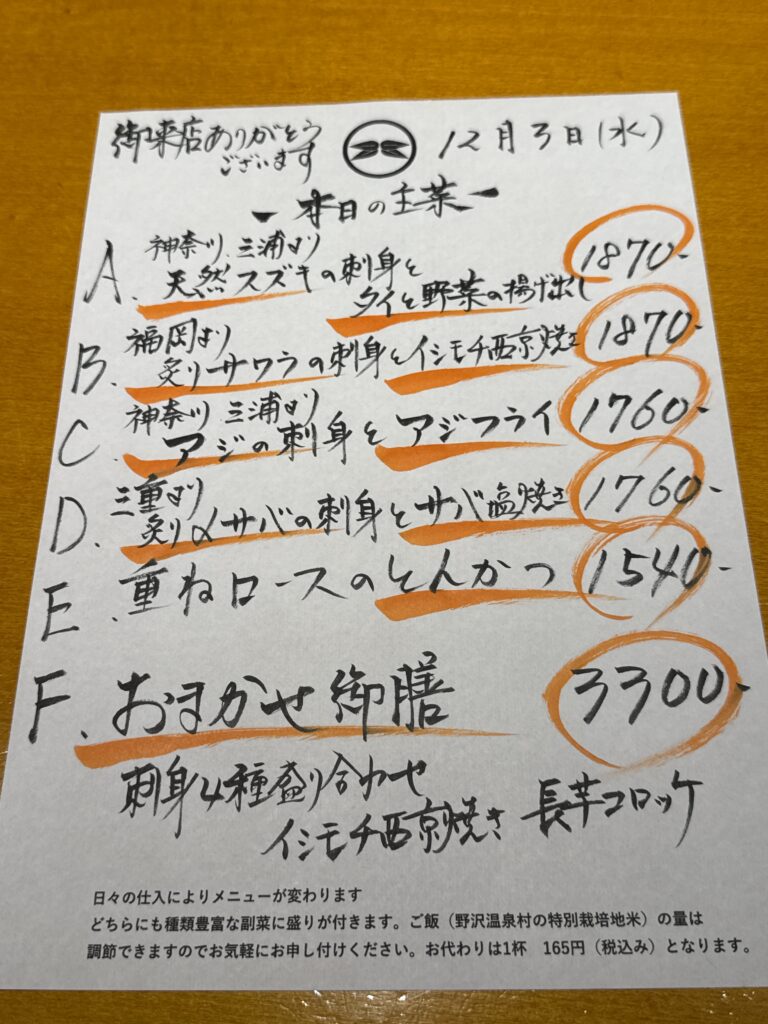 御来店ありがとう
ございます
12月3日(水)
本日の主菜
A. 神奈川、三浦より
天然スズキの刺身と
タイと野菜の揚げ出し
1870-
B. 福岡より
炙りサワラの刺身とイシモチ西京焼き
1870-
C. 神奈川 三浦より
アジの刺身とアジフライ
1760-
D. 三重より
炙り〆サバの刺身とサバ塩焼き
1760-
E. 重ねロースのとんかつ
1540-
F. おまかせ御膳
3300-
刺身4種盛り合わせ
イシモチ西京焼き 長芋コロッケ
日々の仕入によりメニューが変わります
どちらにも種類豊富な副菜に盛りが付きます。ご飯（野沢温泉村の特別栽培地米）の量は
調節できますのでお気軽にお申し付けください。お代わりは1杯　165円（税込み）となります。